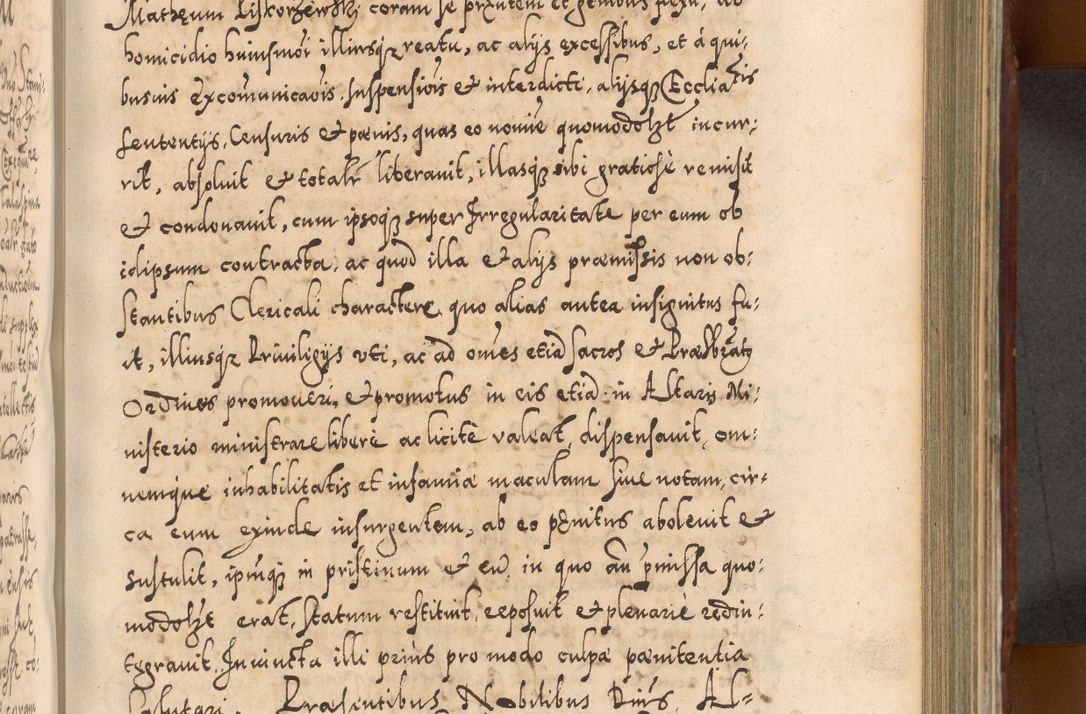 Mathęum Piskorzewskj coram se pr̃ntem et genibus flexũ, ab
homicidio huiusmoi illiusqȝ reatu, ac alijs excessibus, et á qui:
busuis excom̃unicaõis, suspensiõis & interdicti, alijsqȝ Eccliaꝛ̃cis
sententijs, Censuris & pænis, quas eo nomĩe quomodolȝt incur:
rit, absoluit & totalr̃ liberauit, illasqȝ sibi gratiosè remisit
& condonauit, cum ipsoqȝ super Irregularitate per eum ob
idipsum contracta, ac quod illa & alijs præmissis non ob:
stantibus Clericali charactere, quo alias antea insignitus fu:
it, illiusqȝ Priuiligijs vti, ac ad om̃es etiã sacros & Præsb̃ratq
Ordines promoueri, & promotus in eis etiã in Altaris Mi:
nisterio ministrare liberè ac licitè valeat, dispensauit, om:
nemque inhabilitatis et infamiæ maculam siue notam, cir:
ca eum exinde insurgentem, ab eo pęnitus aboleuit &
sustulit, ipm̃qȝ in pristinum & eũ, in quo añ p̃missa quo:
modolȝt erat, statum restituit, reposuit & plenariè redin:
tegrauit. Iniuncta illi priùs pro modo culpæ pænitentia
salutari. Præsentibus Nobilibus Dñis, Al=